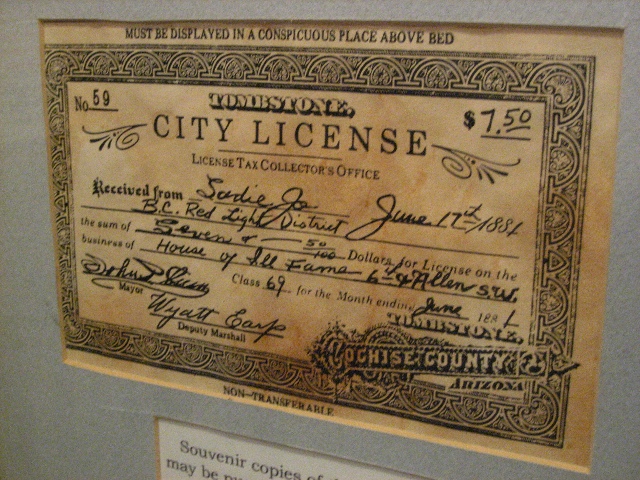 MUST BE DISPLAYED IN A CONSPICUOUS PLACE ABOVE BED
No. 59
TOMBSTONE,
$7.50
CITY LICENSE
LICENSE TAX COLLECTOR'S OFFICE
Received from Sadie Jo June 17th/1881
B.C. Red Light District
the sum of Seven & 50/100 Dollars for License on the
business of House of Ill Fame 6th & Allen S.W.
Class 69 for the Month ending June 1881
John P. Clum
Mayor
Wyatt Earp
Deputy Marshall
TOMBSTONE,
COCHISE COUNTY
ARIZONA
NON-TRANSFERABLE
Souvenir copies of
may be